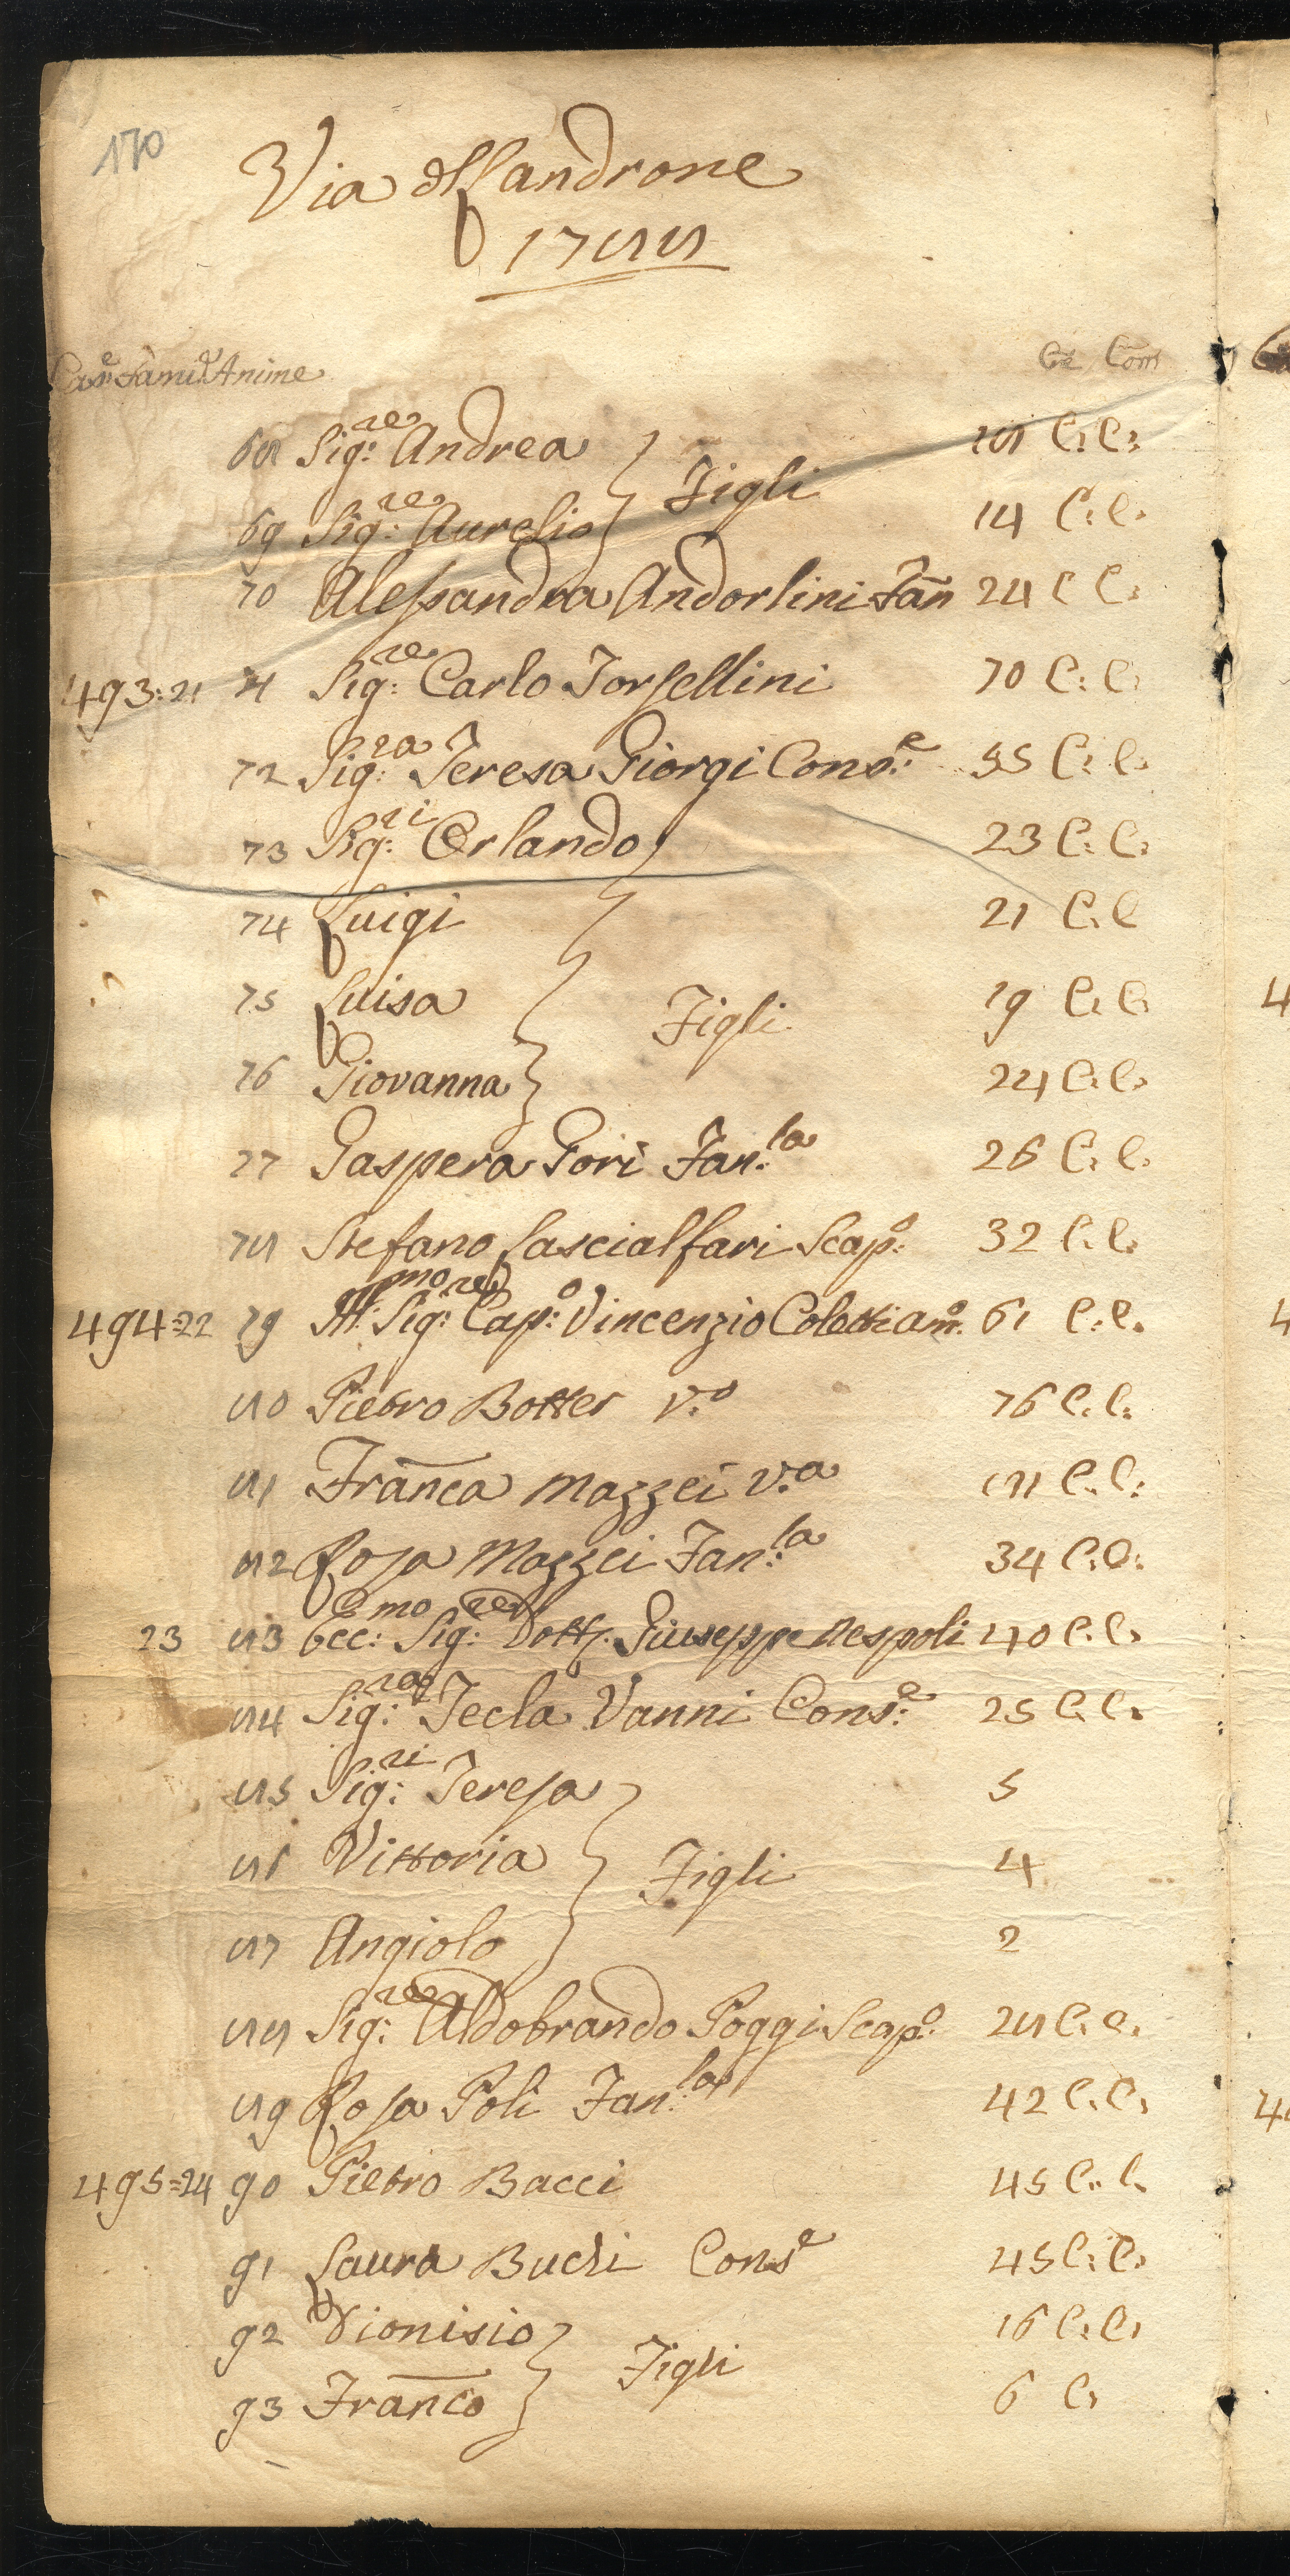 170
Via
1788
Case Famie Anime
Ce Com
68 Sig:re Andrea } Figli 18 C: C:
69 Sig:re Aurelio 14 C: C.
70 Alessandra Andorlini Fan 24 C C.
493:21 71 Sig:re Carlo Torsellini 70 C: C:
72 Sig:ra Teresa Giorgi Cons:e 55 C: C.
73 Sig:ri Orlando 23 C: C:
74 Luigi 21 C. C
75 Luisa } Figli 19 C. C
76 Giovanna 24 C. C.
77 Gaspera Gori Fan:la 26 C. C.
78 Stefano Lascialfari Scap:o 32 C. C.
494:22 79 Ill:mo Sig:re Cap:o Vincenzio Coletti am:o 61 C: C.
80 Pietro Botter V:o 76 C. C:
81 Franca Mazzei V:a 81 C. C:
82 Rosa Mazzei Fan:la 34 C: C:
23 83 Ecc:mo Sig:re Dott. Giuseppe Nespoli 40 C. C.
84 Sig:ra Tecla Vanni Cons:e 25 C. C.
85 Sig:ri Teresa 5
86 Vittoria } Figli 4
87 Angiolo 2
88 Sig:re Aldobrando Poggi Scap:o 28 C. C.
89 Rosa Poli Fan:la 42 C. C.
495=24 90 Pietro Bacci 45 C. C.
91 Laura Buchi Conse 45 C: C.
92 Dionisio } Figli 16 C. C.
93 Franco 6 C.